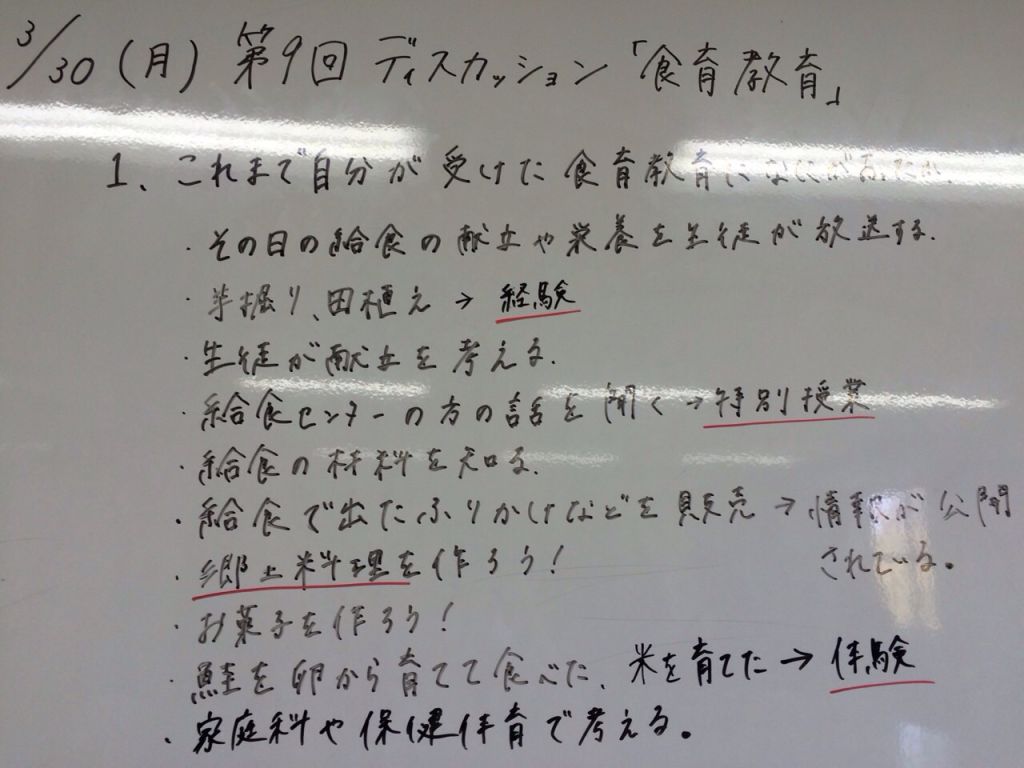 3/30(月) 第9回 ディスカッション「食育教育」
1、これまで自分が受けた食育教育になにがあったか。
・その日の給食の献立や栄養を生徒が放送する。
・芋掘り、田植え → 経験
・生徒が献立を考える。
・給食センターの方の話を聞く → 特別授業
・給食の材料を知る。
・給食で出たふりかけなどを販売 → 情報が公開
されている。
・郷土料理を作ろう!
・お菓子を作ろう!
・鮭を卵から育てて食べた、米を育てた → 体験
・家庭科や保健体育で考える。